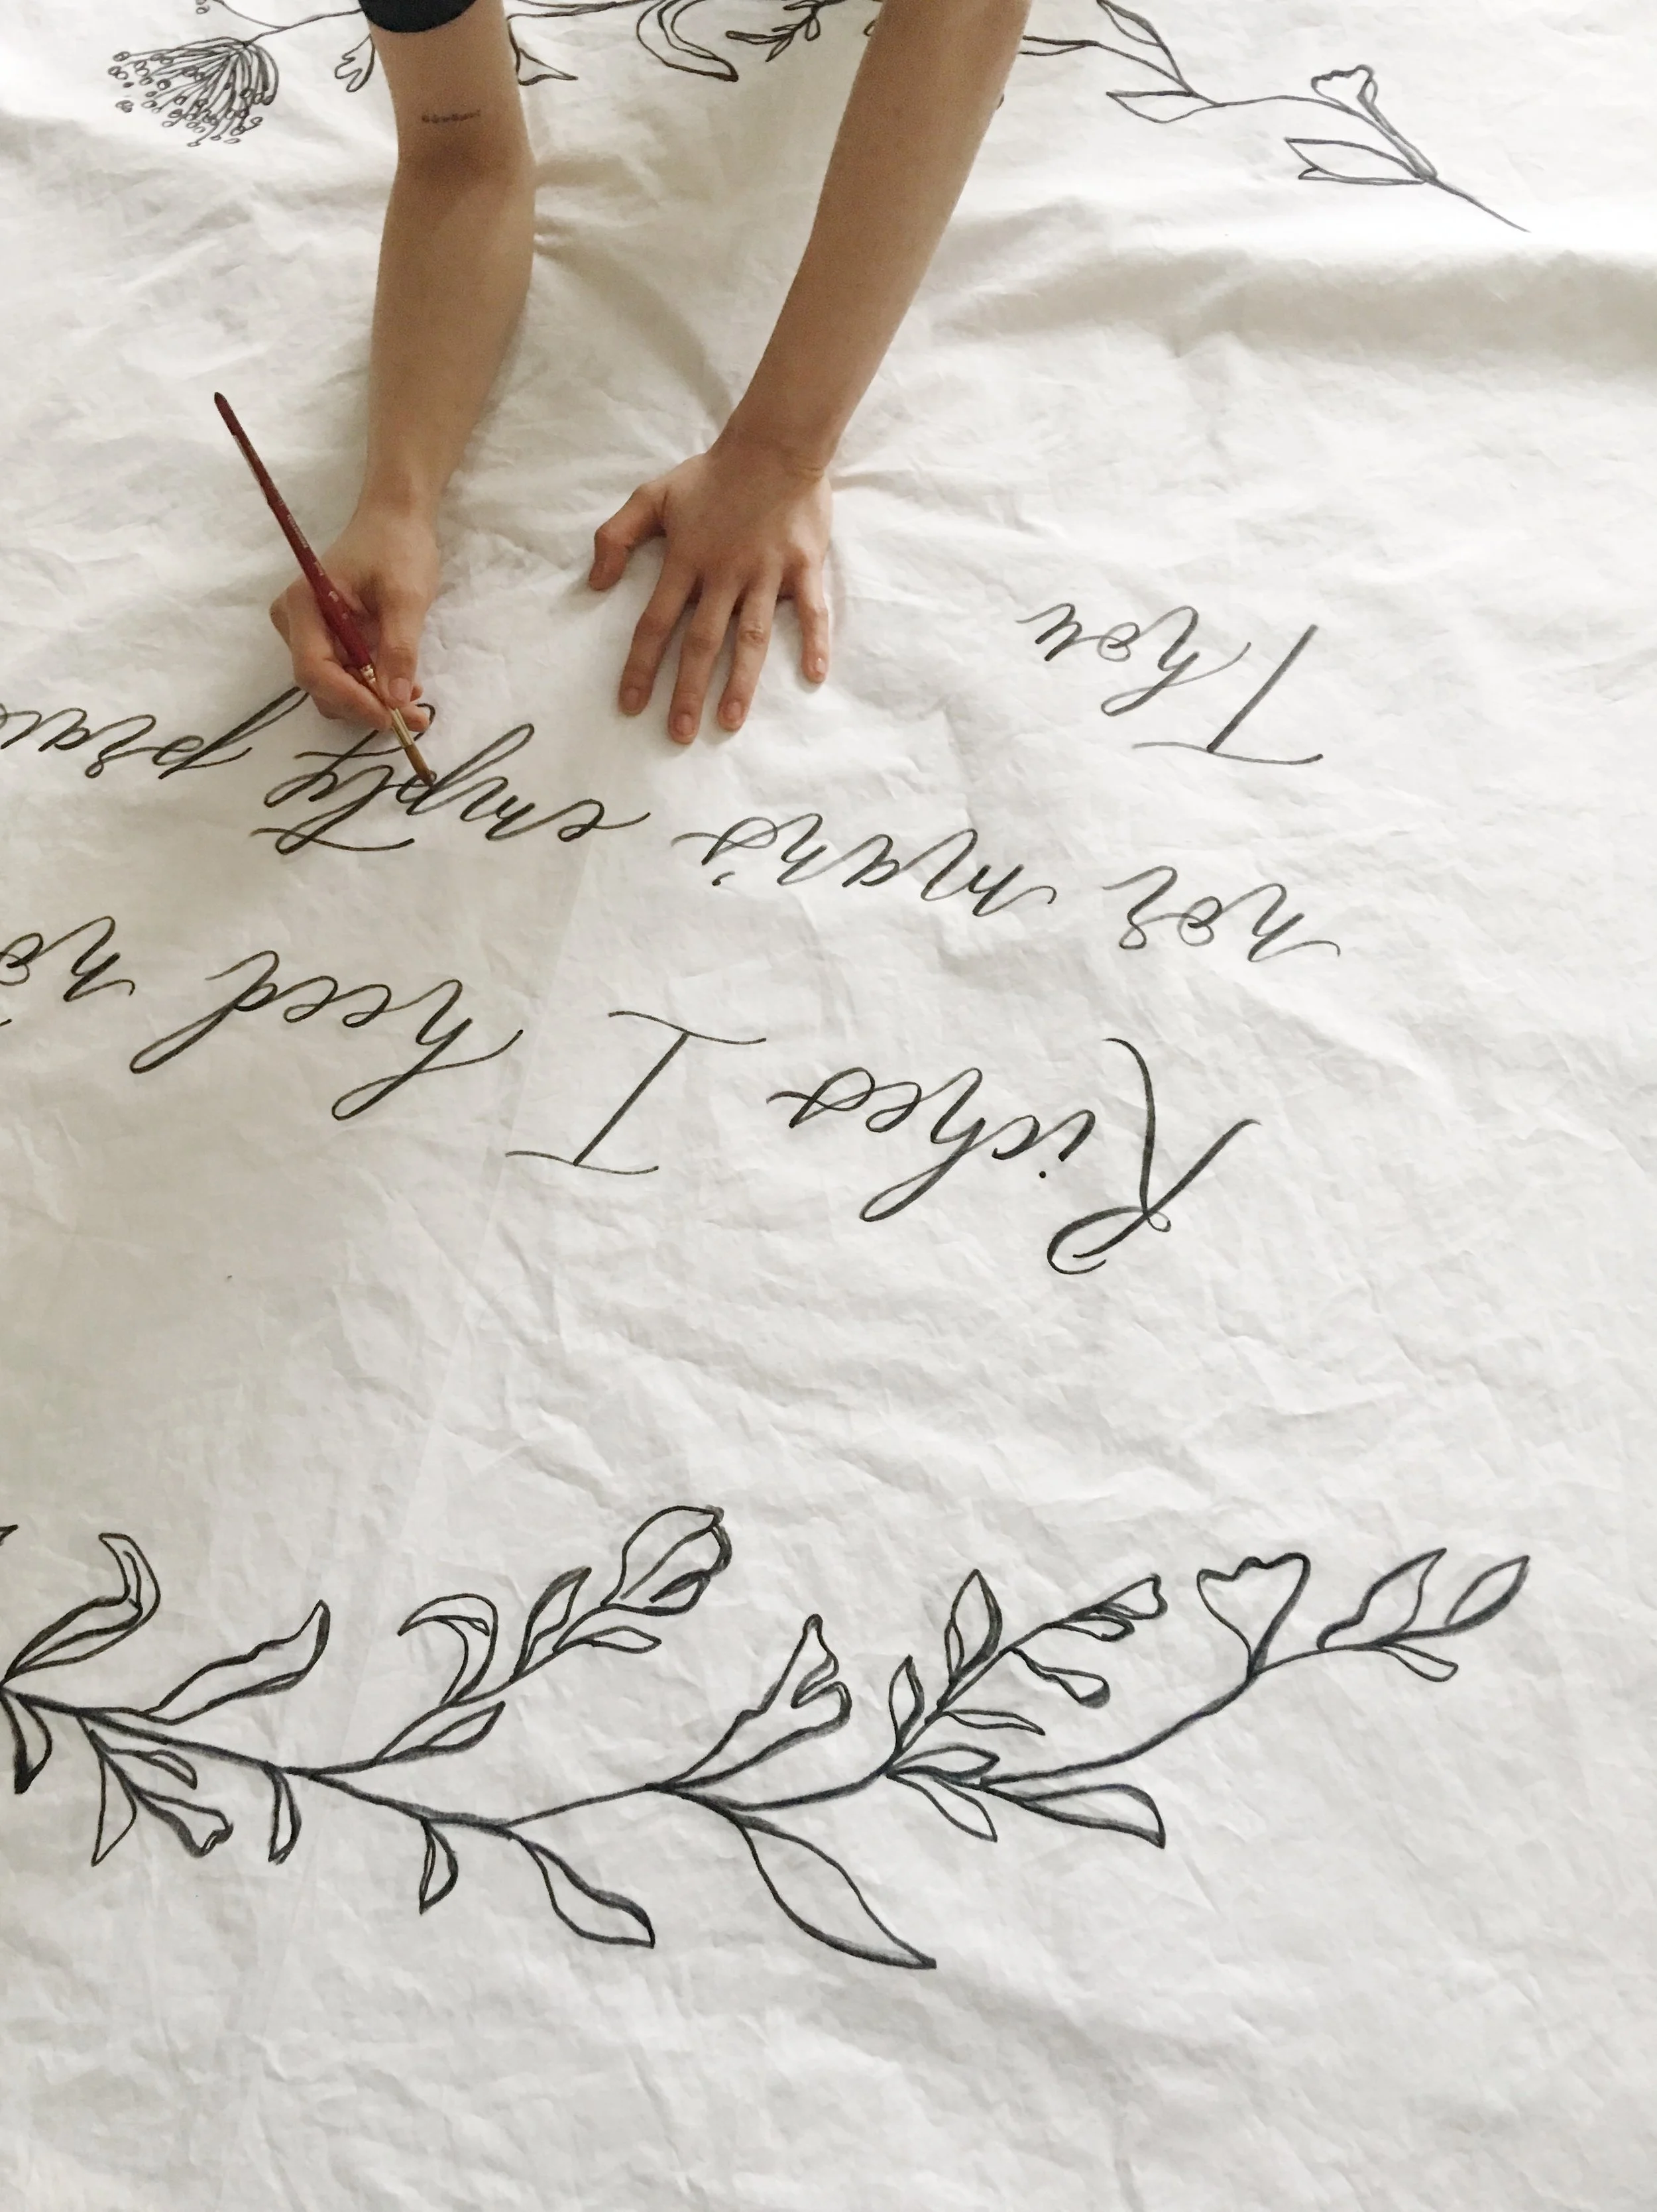 Riches I heed no
nor man's empty prai
Thou